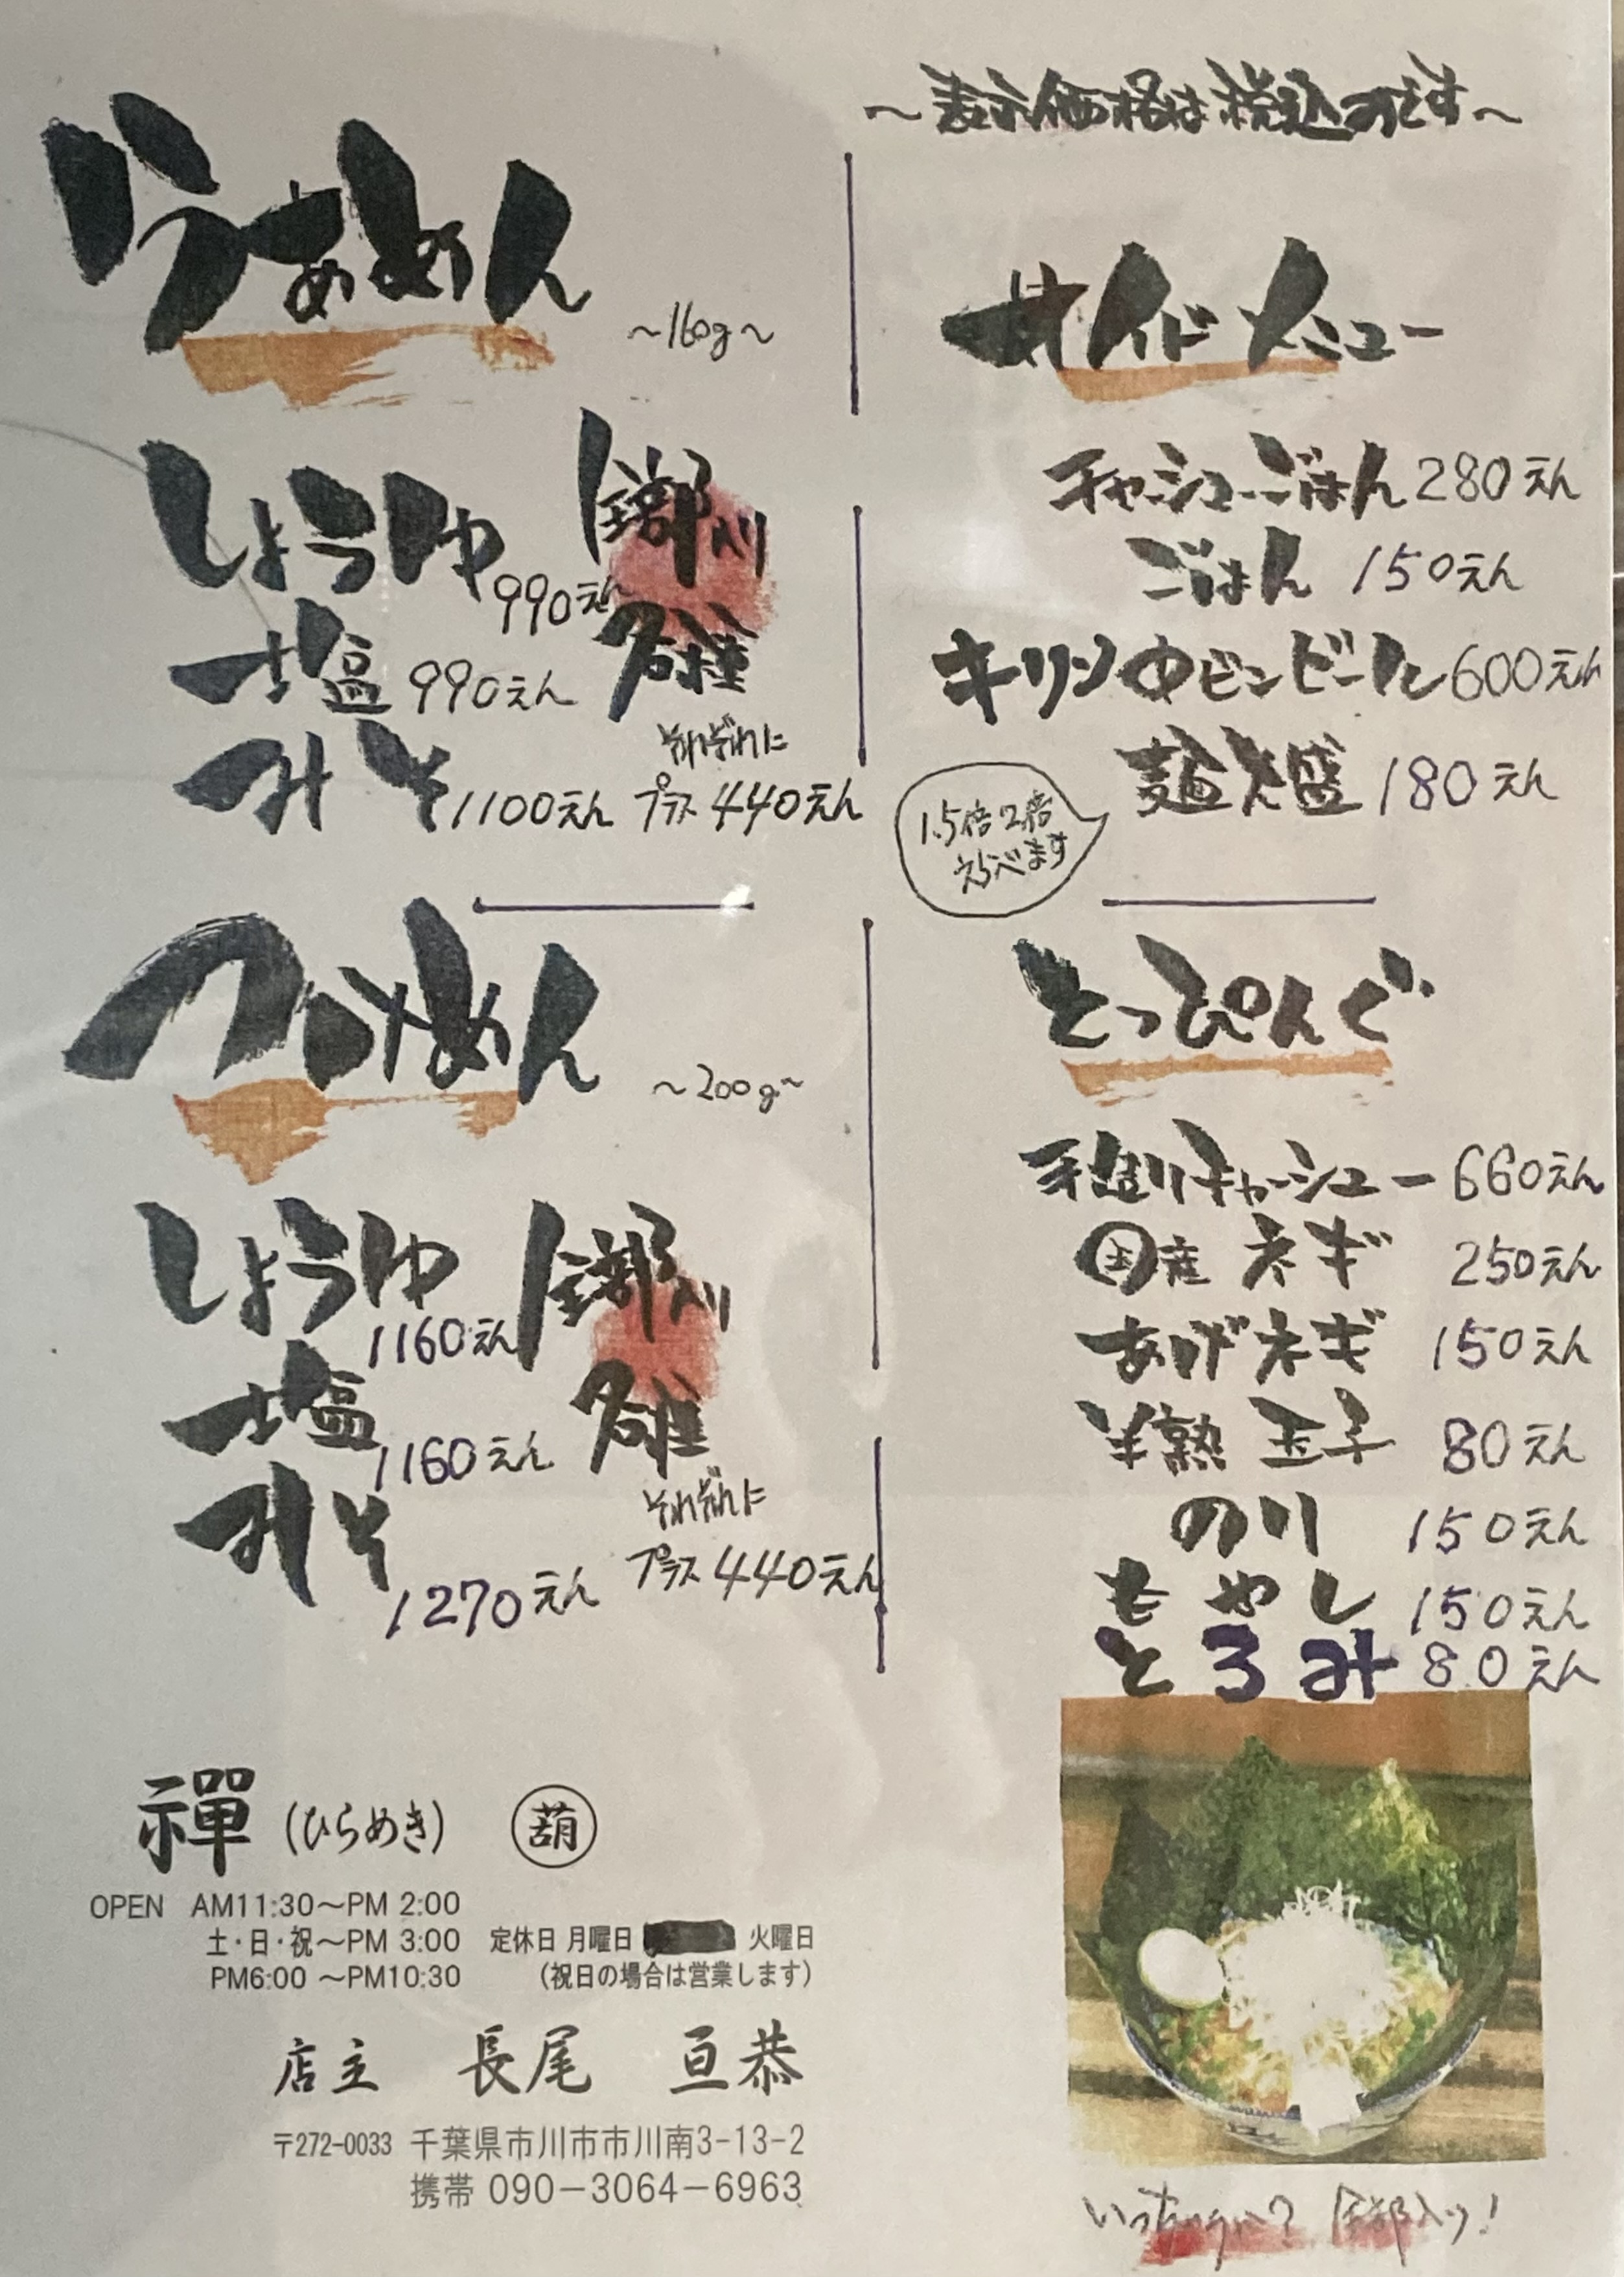 ～表示価格は税込みです～
らぁめん
～160g～
しょうゆ 990えん
塩 990えん
みそ 1100えん
全部入り
各種
それぞれに
プラス 440えん
つけめん
～200g～
しょうゆ 1160えん
塩 1160えん
みそ 1270えん
全部入り
各種
それぞれに
プラス 440えん
サイドメニュー
チャーシューごはん 280えん
ごはん 150えん
キリン中ビンビール 600えん
麺大盛 180えん
1.5倍 2倍
えらべます
とっぴんぐ
手造りチャーシュー 660えん
国産 ネギ 250えん
あげネギ 150えん
半熟 玉子 80えん
のり 150えん
もやし 150えん
とろみ 80えん
全部入り!
禪 (ひらめき)
OPEN AM11:30～PM 2:00
土・日・祝～PM 3:00
PM6:00 ～PM10:30
定休日 月曜日 火曜日
(祝日の場合は営業します)
店主 長尾 亘恭
〒272-0033 千葉県市川市市川南3-13-2
携帯 090－3064－6963